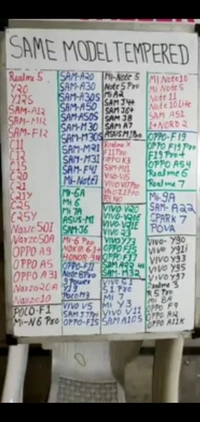 SAME MODEL TEMPERED
Realme 5
Y20
Y12S
SAM-A12
SAM-M12
SAM-F12
C11
C12
C15
C20
C21
C21Y
C25
C25Y
Narzo 50A
OPPO A9
OPPO A5
OPPO A31
Narzo 20A
Narzo 10
POCO-F1
Mi-N6 Pro
SAM-A20
SAM-A30
SAM-A30S
SAM-A50
SAM-A50S
SAM-M30
SAM-M30S
SAM-M21
SAM-M31
SAM-F41
Mi-Note7
Mi-6A
Mi 6
Mi 7A
ASUS-M1
SAM-J6
Mi-6 Pro
HONOR-9N
OPPO-F11
Note 8 Pro
POCO M3
VIVO V5
SAM J7 Pri
OPPO-F1S
Mi-Note 5
Note 5 Pro
Mi A2
SAM J4+
SAM J6+
SAM J8
SAM A7
Realme X
F11 Pro
OPPO K3
SAM-M11
VIVO-V15
VIVO V17 Pro
VIVO V20
VIVO-V20SE
VIVO-V21E
VIVO Y73
OPPO F15
OPPO F17
SAM A22 4G
SAM-M32
VIVO S1
S1 Pro
Mi 7
Mi Y3
VIVO V11
SAM A10S
Mi Note 10
Mi Note 5
Note 11
Note 10 Lite
SAM A51
1+NORD 2
OPPO-F19
OPPO F19 Pro
F19 Pro+
OPPO A54
Realme 6
Realme 7
Mi-9A
SAM-A22
SPARK 7
POVA
Vivo-Y90
Vivo Y91
Vivo Y93
Vivo Y95
Vivo Y97
Realme 3
Mi 8A
OPPO F9
OPPO A12
OPPO A11K